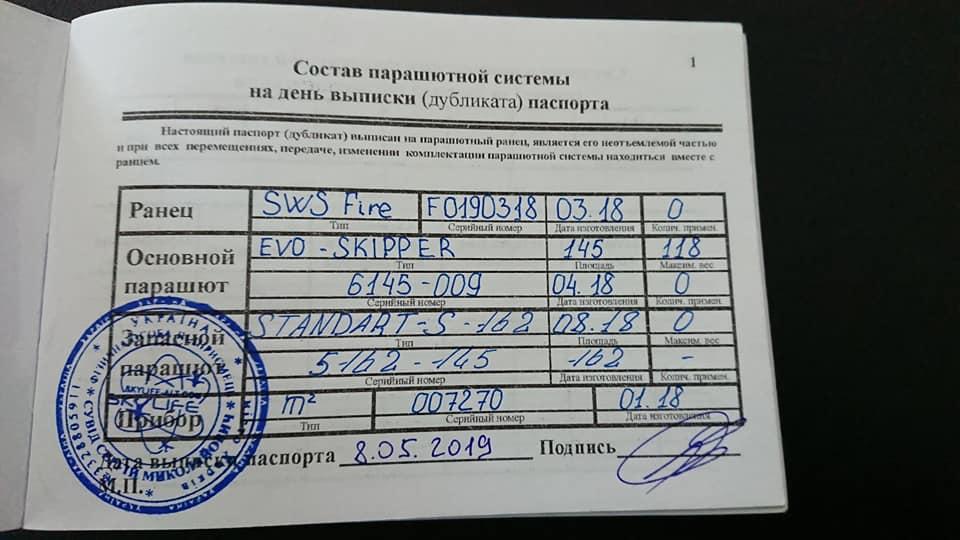 1
Состав парашютной системы
на день выписки (дубликата) паспорта
Настоящий паспорт (дубликат) выписан на парашютный ранец, является его неотъемлемой частью
и при всех перемещениях, передаче, изменении комплектации парашютной системы находиться вместе с
ранцем.
Ранец SWS Fire F0190318 03.18 0
Тип Серийный номер Дата изготовления Колич. примен.
Основной парашют EVO-SKIPPER 145 118
Тип Площадь Максим. вес.
6145-009 04.18 0
Серийный номер Дата изготовления Колич. примен.
Запасной парашют STANDART-S-162 08.18 0
Тип Площадь Максим. вес
5162-145 162 -
Серийный номер Дата изготовления Колич. примен.
Прибор m² 007270 01.18
Тип Серийный номер Дата изготовления
Дата выписки паспорта 8.05.2019 Подпись
М.П.
УКРАЇНА
SKYLIFE
СЕРГІЙ МИКОЛАЙОВИЧ